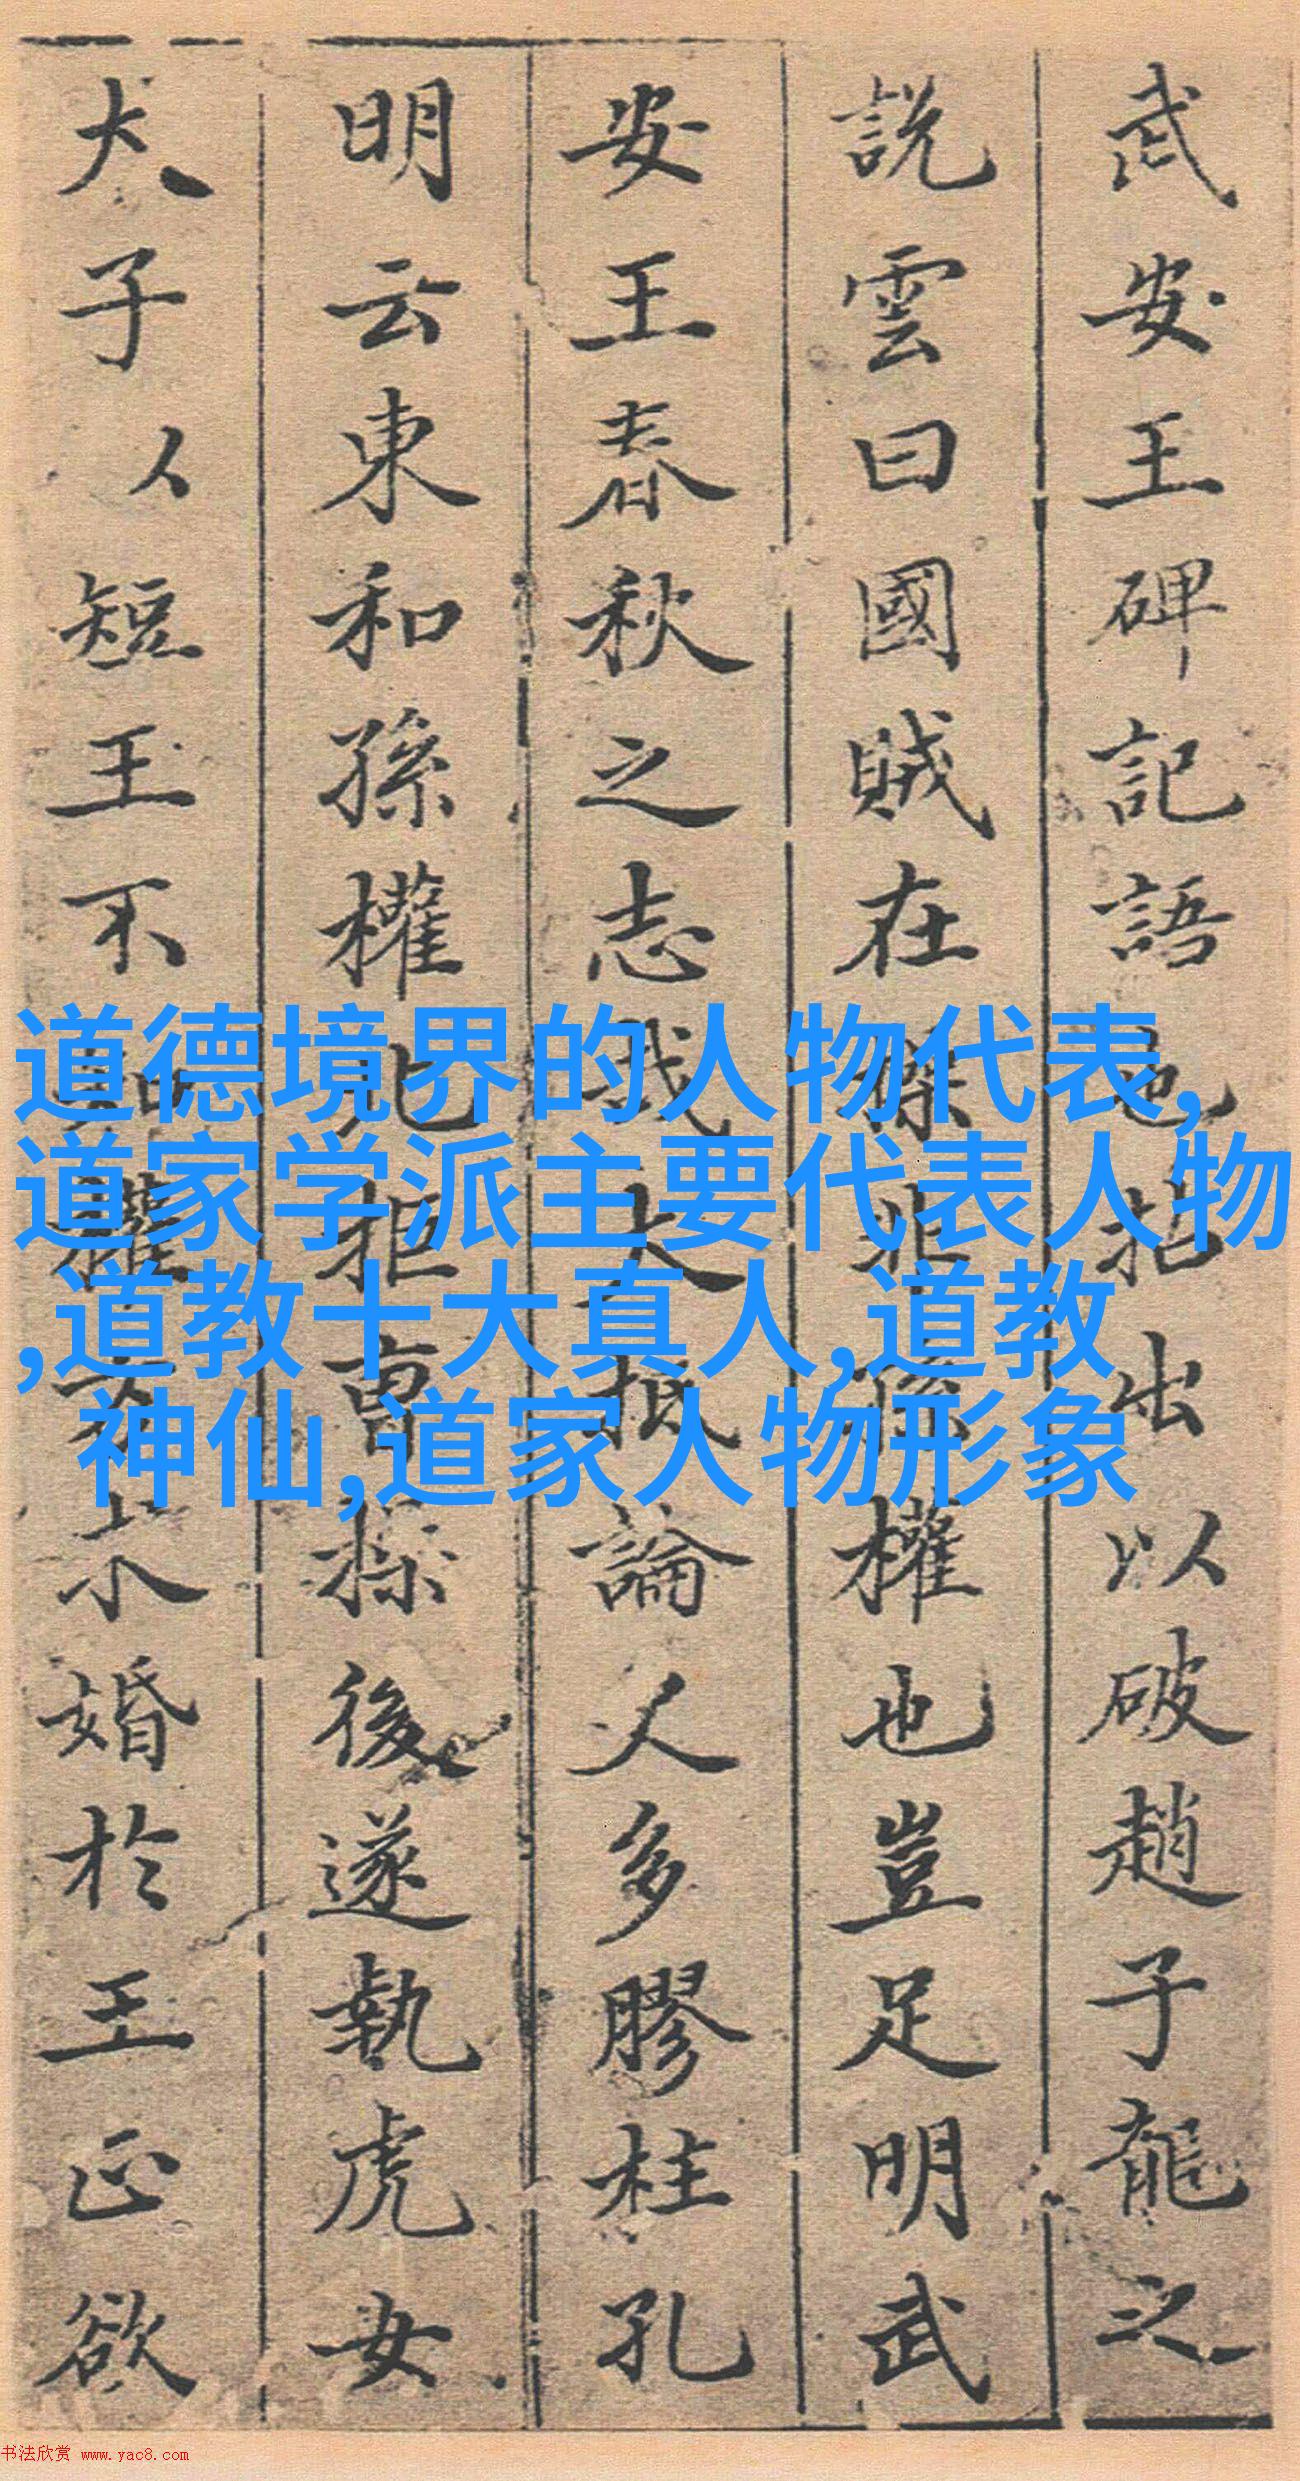 武安王碑記語也拈出以破趙子龍之
說雲曰國賊在操非孫權也豈足明武
安王春秋之志哉大抵論人多膠柱孔
明云東和孫權北拒曹操後遂執虎女
犬子人短王不知權女求婚於王正欲
道德境界的人物代表,
道家学派主要代表人物
,道教十大真人,道教
神仙,道家人物形象
书法欣赏 www.yac8.com